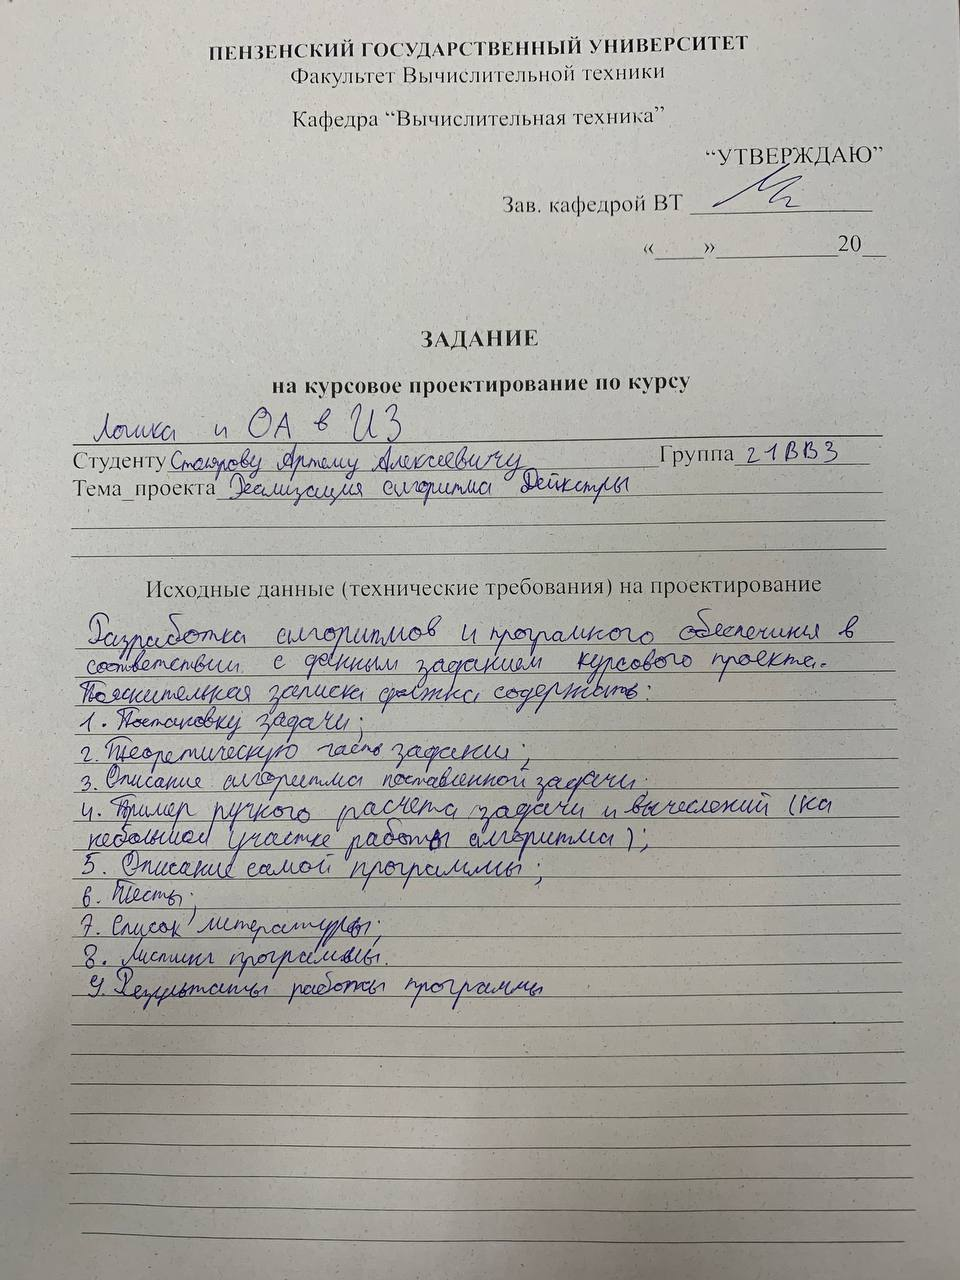 ПЕНЗЕНСКИЙ ГОСУДАРСТВЕННЫЙ УНИВЕРСИТЕТ
Факультет Вычислительной техники
Кафедра “Вычислительная техника”
“УТВЕРЖДАЮ”
Зав. кафедрой ВТ
«____»__________20__
ЗАДАНИЕ
на курсовое проектирование по курсу
Логика и ОА в ИЗ
Студенту Столярову Артему Алексеевичу Группа 21ВВ3
Тема проекта Реализация алгоритма Дейкстры
Исходные данные (технические требования) на проектирование
Разработка алгоритмов и програмного обеспечения в
соответствии с данным заданием курсового проекта.
Пояснительная записка должна содержать:
1. Постановку задачи;
2. Теоретическую часть задания;
3. Описание алгоритма поставленной задачи;
4. Пример ручного расчета задачи и вычеслений (на
небольшом участке работы алгоритма);
5. Описание самой программы;
6. Тесты;
7. Список литературы;
8. Листинг программы.
9. Результаты работы программы